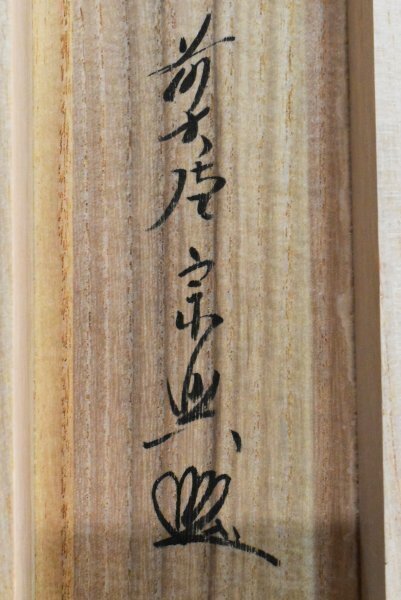 前大徳 宗興